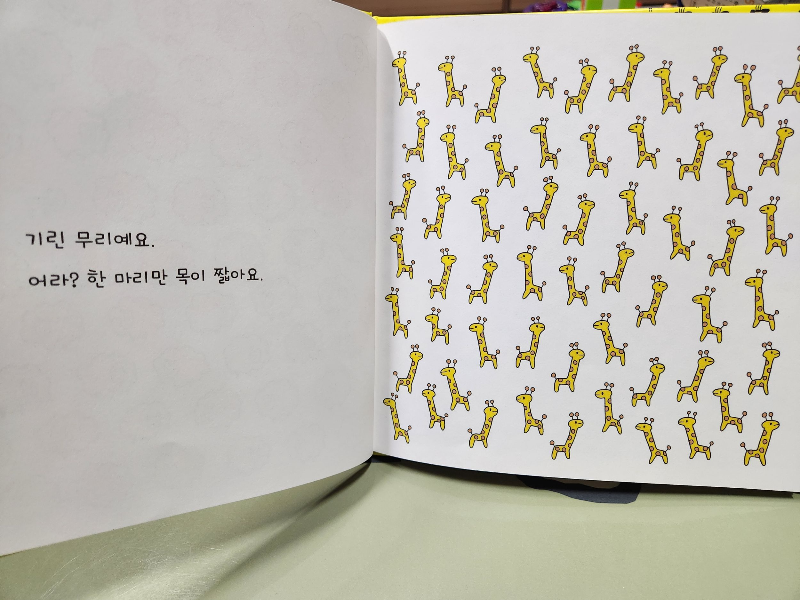 기린 무리예요.
어라? 한 마리만 목이 짧아요.